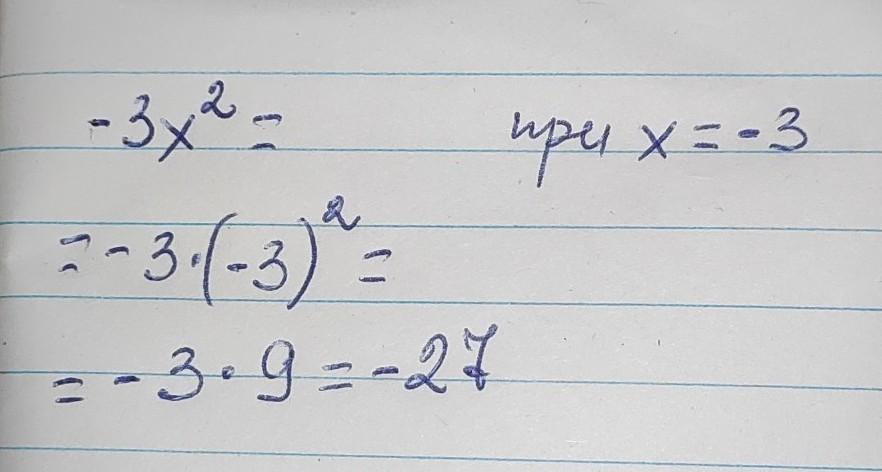 -3x² =   при x = -3
= -3·(-3)² =
= -3·9 = -27